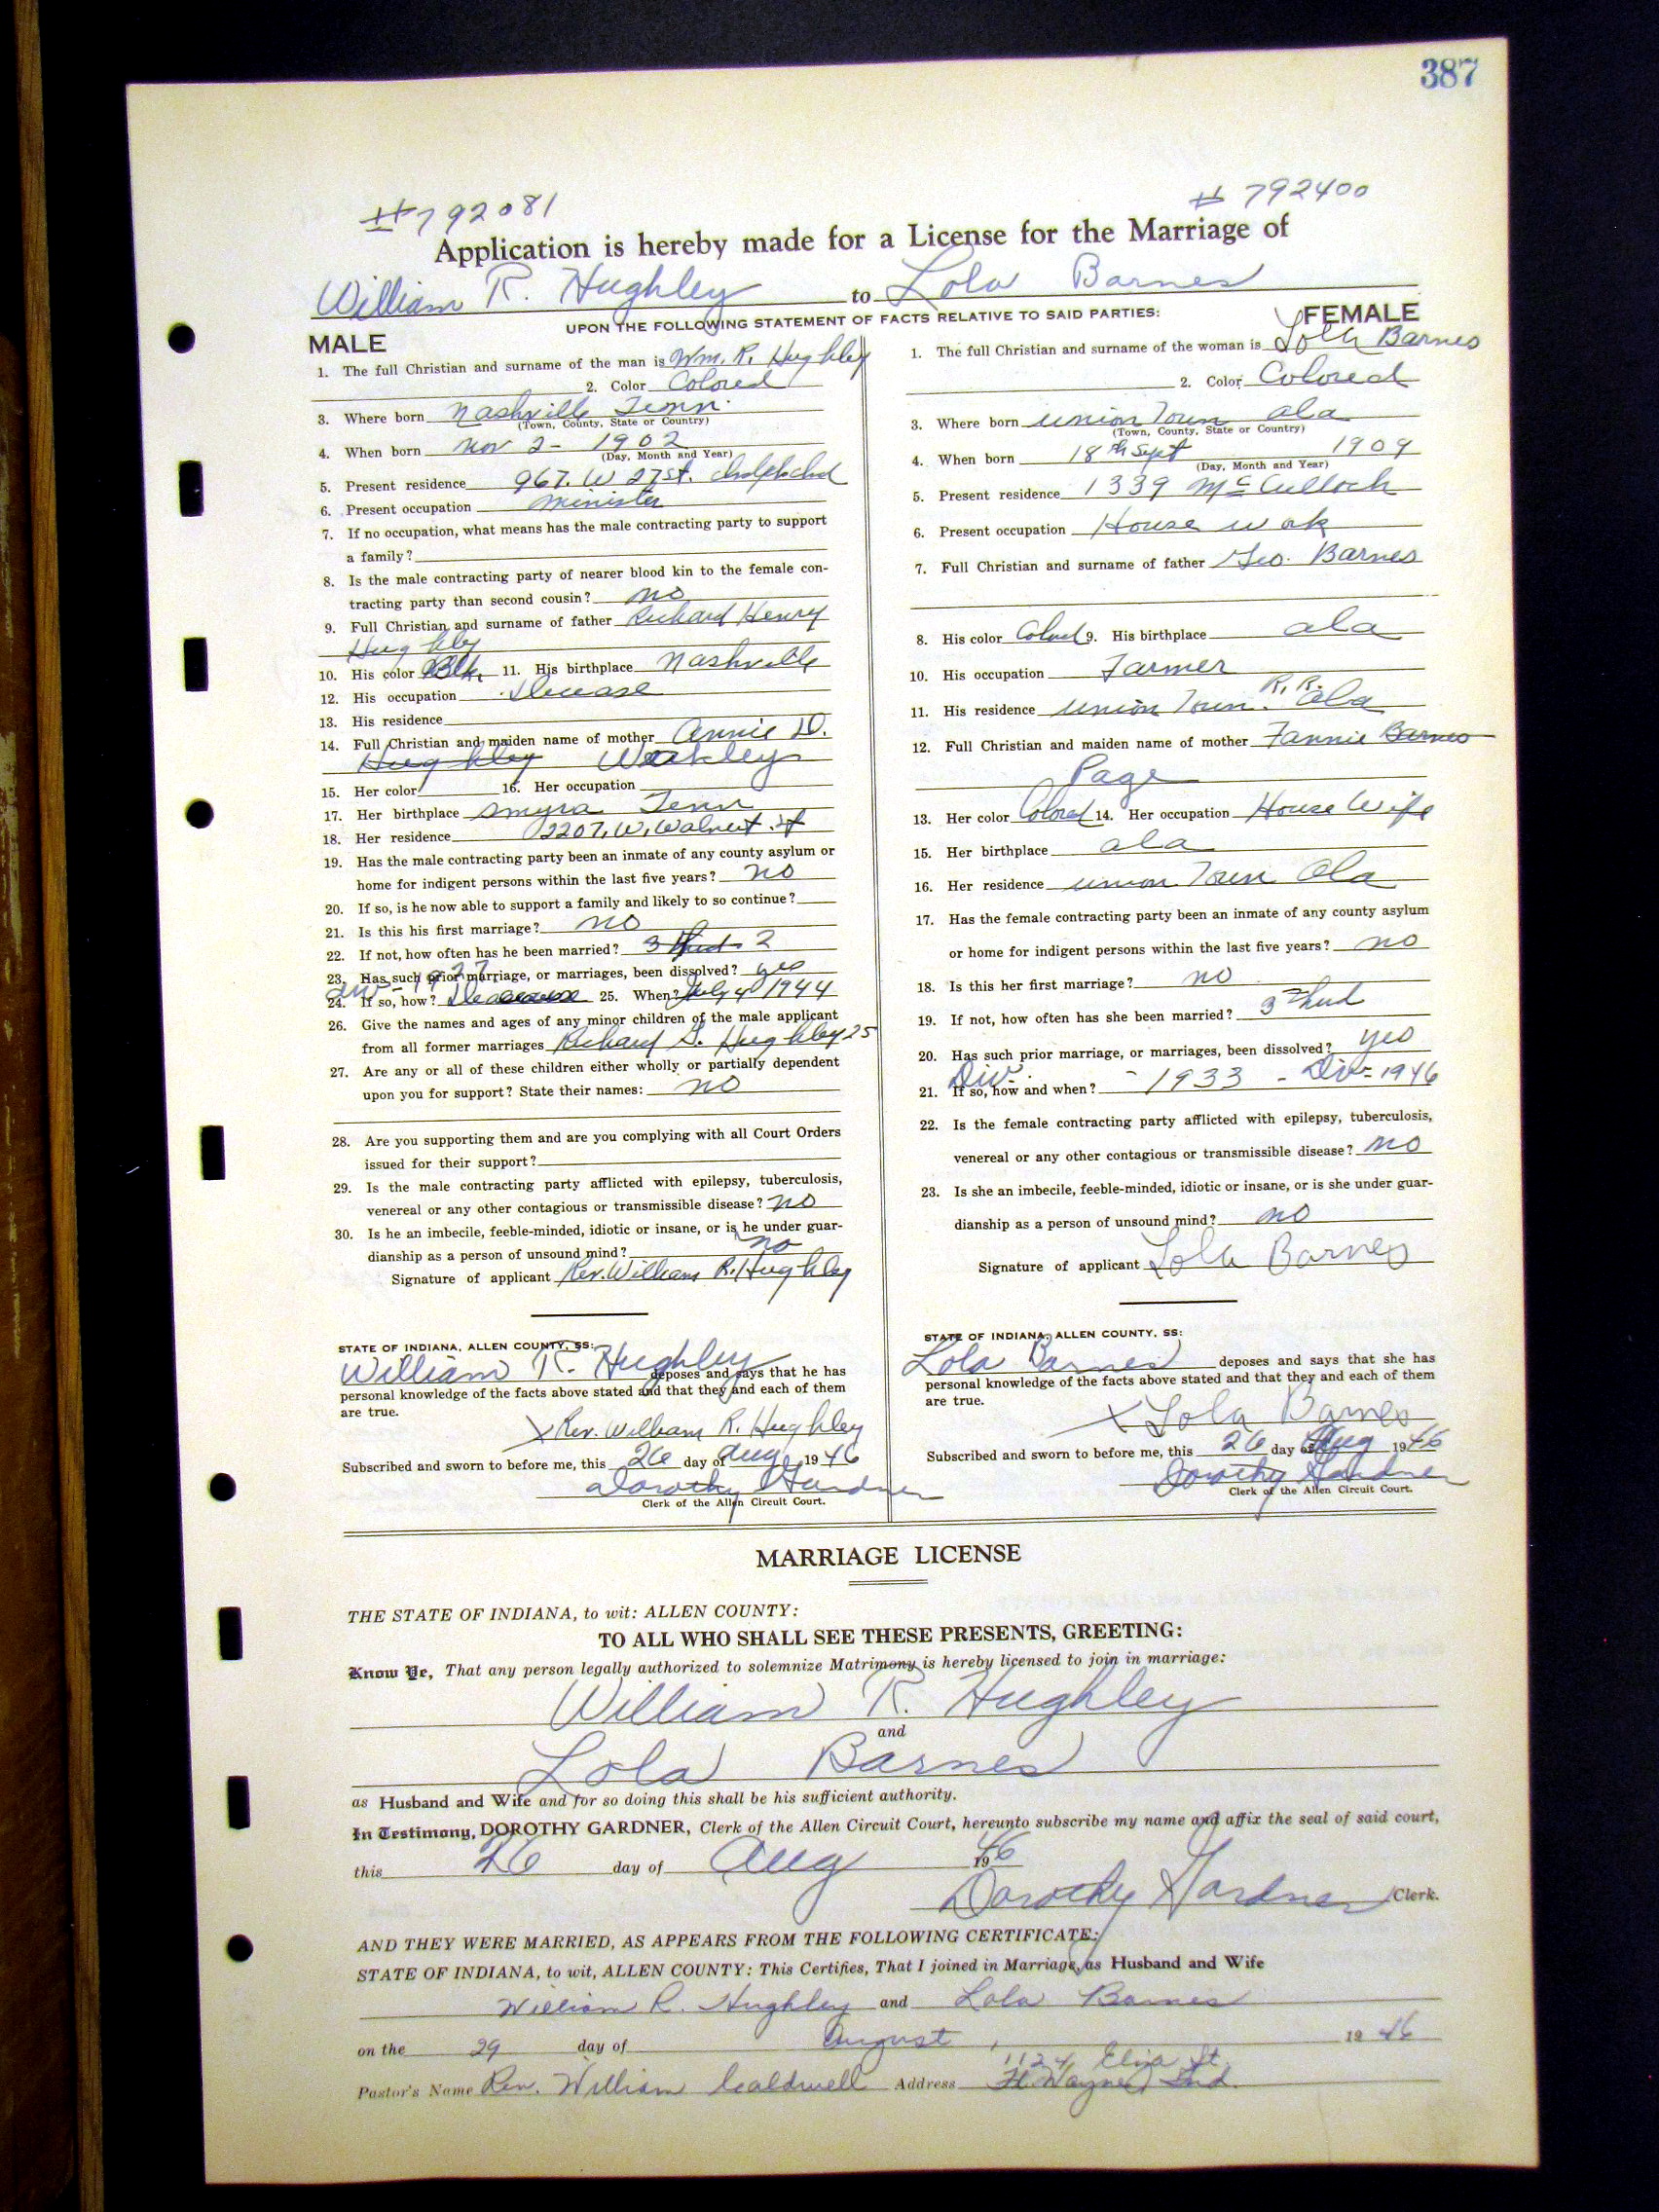 387
#792081
# 792400
Application is hereby made for a License for the Marriage of
William R. Hughley to Lola Barnes
UPON THE FOLLOWING STATEMENT OF FACTS RELATIVE TO SAID PARTIES:
MALE
1. The full Christian and surname of the man is Wm. R. Hughley
2. Color Colored
3. Where born Nashville Tenn.
(Town, County, State or Country)
4. When born Nov 2 - 1902
(Day, Month and Year)
5. Present residence 967. W 27 St.
6. Present occupation minister
7. If no occupation, what means has the male contracting party to support
a family?
8. Is the male contracting party of nearer blood kin to the female con-
tracting party than second cousin? no
9. Full Christian and surname of father Richard Henry
Hughley
10. His color Blk. 11. His birthplace Nashville
12. His occupation Dicease
13. His residence
14. Full Christian and maiden name of mother Annie D.
Hughley Weakley
15. Her color 16. Her occupation
17. Her birthplace Smyra Tenn
18. Her residence 2207. W. Walnut St
19. Has the male contracting party been an inmate of any county asylum or
home for indigent persons within the last five years? no
20. If so, is he now able to support a family and likely to so continue?
21. Is this his first marriage? no
22. If not, how often has he been married? 3 third 2
23. Has such prior marriage, or marriages, been dissolved? yes
div - 1927
24. If so, how? 25. When? July 4 1944
26. Give the names and ages of any minor children of the male applicant
from all former marriages Richard G. Hughley 25
27. Are any or all of these children either wholly or partially dependent
upon you for support? State their names: no
28. Are you supporting them and are you complying with all Court Orders
issued for their support?
29. Is the male contracting party afflicted with epilepsy, tuberculosis,
venereal or any other contagious or transmissible disease? no
30. Is he an imbecile, feeble-minded, idiotic or insane, or is he under guar-
dianship as a person of unsound mind? no
Signature of applicant Rev. William R. Hughley
STATE OF INDIANA, ALLEN COUNTY, SS:
William R. Hughley deposes and says that he has
personal knowledge of the facts above stated and that they and each of them
are true.
X Rev. William R. Hughley
Subscribed and sworn to before me, this 26 day of Aug. 1946
Dorothy Gardner
Clerk of the Allen Circuit Court.
FEMALE
1. The full Christian and surname of the woman is Lola Barnes
2. Color Colored
3. Where born Union Town Ala
(Town, County, State or Country)
4. When born 18th Sept 1909
(Day, Month and Year)
5. Present residence 1339 McCulloch
6. Present occupation House work
7. Full Christian and surname of father Geo. Barnes
8. His color Colored 9. His birthplace Ala
10. His occupation Farmer
R.R.
11. His residence Union Town. Ala
12. Full Christian and maiden name of mother Fannie Barnes
Page
13. Her color Colored 14. Her occupation House Wife
15. Her birthplace Ala
16. Her residence Union Town Ala
17. Has the female contracting party been an inmate of any county asylum
or home for indigent persons within the last five years? no
18. Is this her first marriage? no
19. If not, how often has she been married?
20. Has such prior marriage, or marriages, been dissolved? yes
21. If so, how and when? Div - 1933 - Div - 1946
22. Is the female contracting party afflicted with epilepsy, tuberculosis,
venereal or any other contagious or transmissible disease? no
23. Is she an imbecile, feeble-minded, idiotic or insane, or is she under guar-
dianship as a person of unsound mind? no
Signature of applicant Lola Barnes
STATE OF INDIANA, ALLEN COUNTY, SS:
Lola Barnes deposes and says that she has
personal knowledge of the facts above stated and that they and each of them
are true.
X Lola Barnes
Subscribed and sworn to before me, this 26 day of Aug 1946
Dorothy Gardner
Clerk of the Allen Circuit Court.
MARRIAGE LICENSE
THE STATE OF INDIANA, to wit: ALLEN COUNTY:
TO ALL WHO SHALL SEE THESE PRESENTS, GREETING:
Know Ye, That any person legally authorized to solemnize Matrimony is hereby licensed to join in marriage:
William R. Hughley
and
Lola Barnes
as Husband and Wife and for so doing this shall be his sufficient authority.
In Testimony, DOROTHY GARDNER, Clerk of the Allen Circuit Court, hereunto subscribe my name and affix the seal of said court,
this 26 day of Aug 1946
Dorothy Gardner Clerk.
AND THEY WERE MARRIED, AS APPEARS FROM THE FOLLOWING CERTIFICATE:
STATE OF INDIANA, to wit, ALLEN COUNTY: This Certifies, That I joined in Marriage, as Husband and Wife
William R. Hughley and Lola Barnes
on the 29 day of August, 1946
1124 Eliza St.
Pastor's Name Rev. William Caldwell Address Ft. Wayne, Ind.